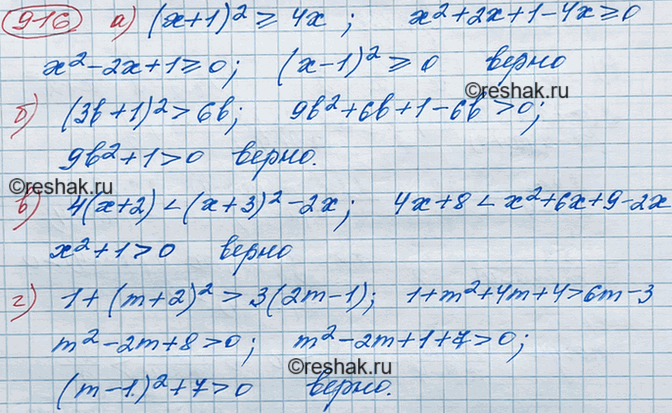 916 а) (x+1)² ≥ 4x; x²+2x+1-4x≥0
x²-2x+1≥0; (x-1)² ≥ 0 верно
©reshak.ru
б) (3b+1)² > 6b; 9b²+6b+1-6b>0;
9b²+1>0 верно.
©reshak.ru
в) 4(x+2) < (x+3)²-2x; 4x+8 < x²+6x+9-2x
x²+1>0 верно
г) 1+(m+2)² > 3(2m-1); 1+m²+4m+4>6m-3
m²-2m+8>0; m²-2m+1+7>0;
©reshak.ru
(m-1)²+7>0 верно.